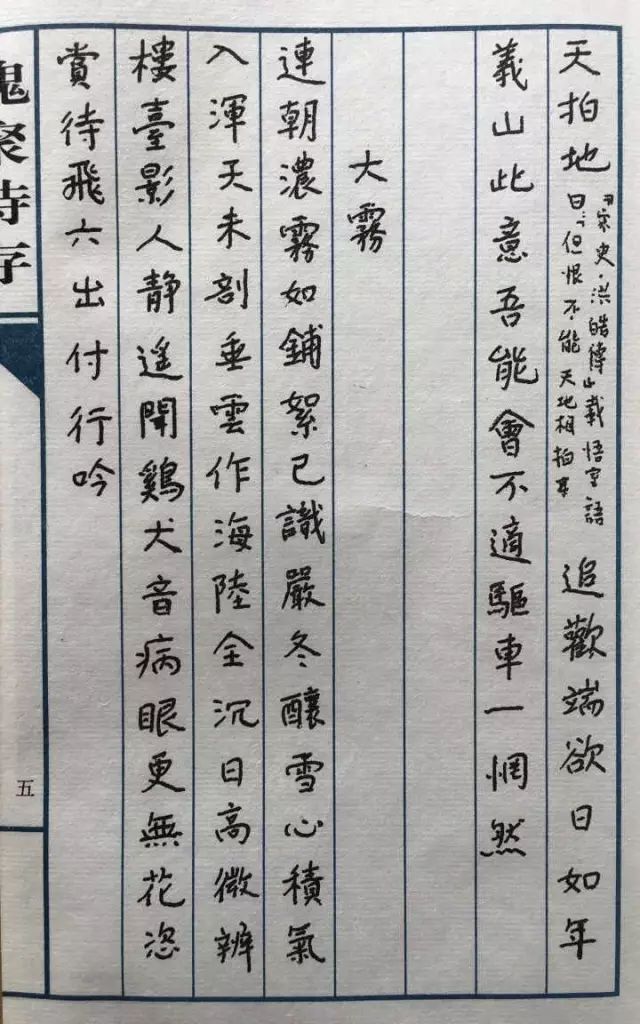 天拍地
《宋史·洪皓傳》載悟室語
曰：但恨不能天地相拍耳
追歡端欲日如年
義山此意吾能會不適驅車一惘然
大霧
連朝濃霧如鋪絮已識嚴冬釀雪心積氣
入渾天未剖垂雲作海陸全沉日高微辨
樓臺影人靜遙聞鷄犬音病眼更無花恣
賞待飛六出付行吟
槐聚詩存
五